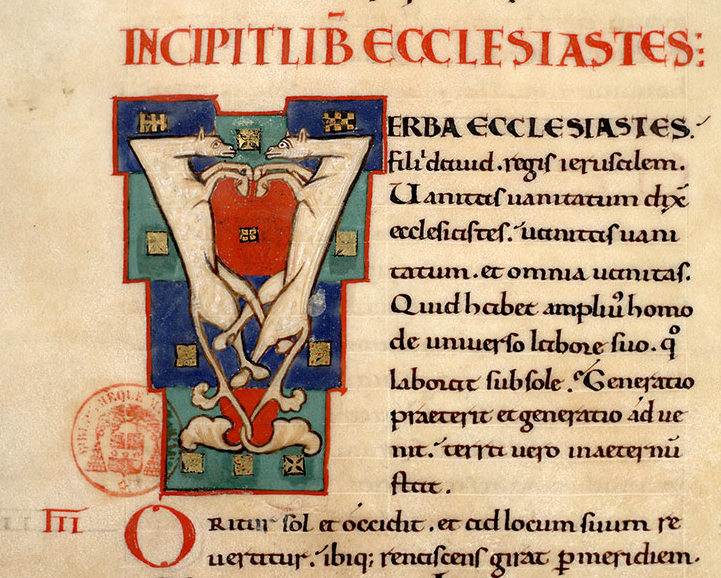 INCIPIT LIB̄ ECCLESIASTES:
VERBA ECCLESIASTES.
filii dauid. regis ierusalem.
Uanitas uanitatum dix̄
ecclesiastes. uanitas uani
tatum. et omnia uanitas.
Quid habet ampliū homo
de uniuerso labore suo. qͦ
laborat sub sole. Generatio
praeterit et generatio adue
nit. terra uero inaeternū
stat.
III ORitur sol et occidit. et ad locum suum re
uertitur. ibiq; renascens girat p̄ meridiem.